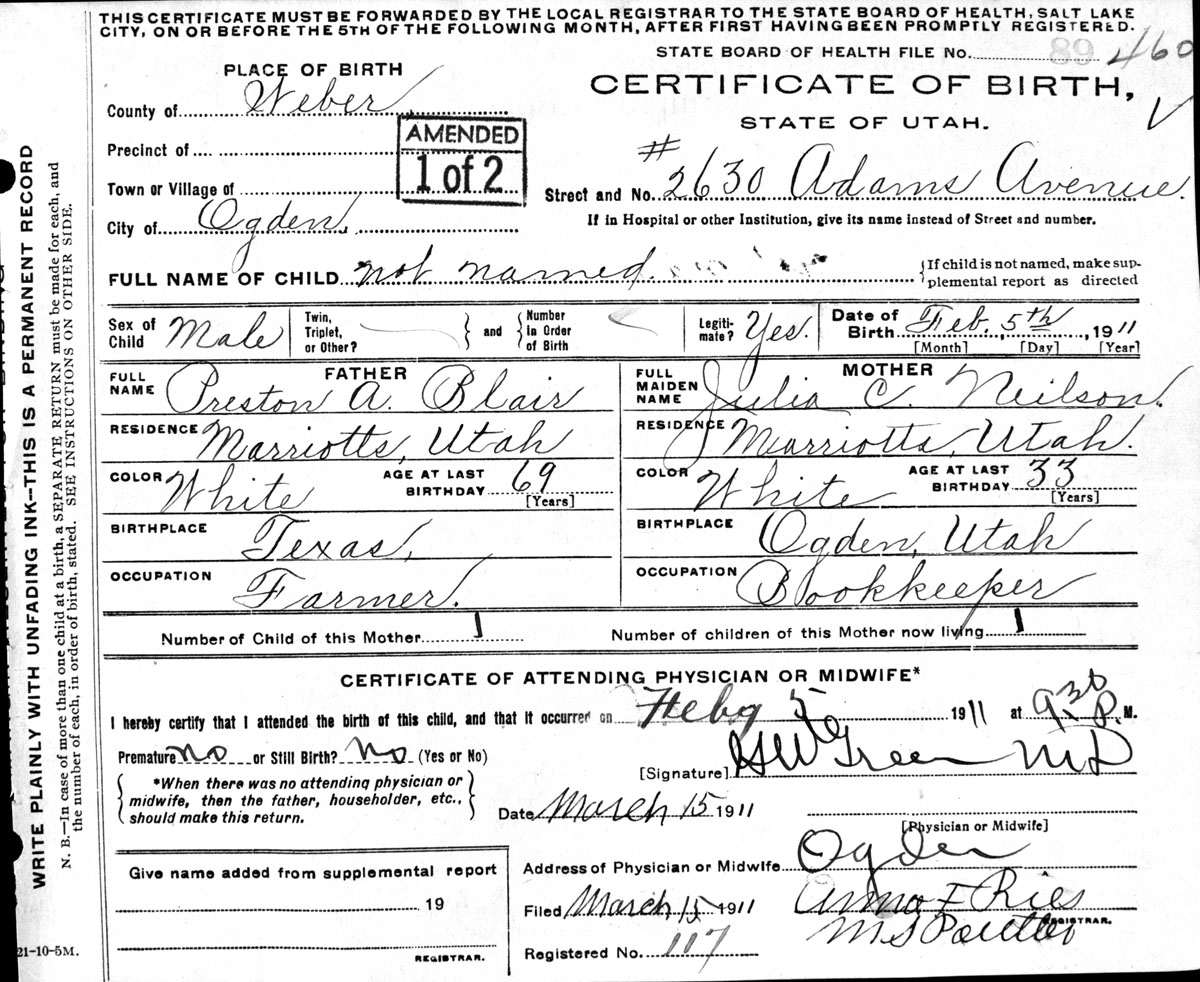 THIS CERTIFICATE MUST BE FORWARDED BY THE LOCAL REGISTRAR TO THE STATE BOARD OF HEALTH, SALT LAKE
CITY, ON OR BEFORE THE 5TH OF THE FOLLOWING MONTH, AFTER FIRST HAVING BEEN PROMPTLY REGISTERED.
STATE BOARD OF HEALTH FILE No. 89 460
PLACE OF BIRTH
CERTIFICATE OF BIRTH,
County of Weber
STATE OF UTAH.
AMENDED
1 of 2
Precinct of
Town or Village of
Street and No. #2630 Adams Avenue.
City of Ogden,
If in Hospital or other Institution, give its name instead of Street and number.
FULL NAME OF CHILD not named.
{If child is not named, make sup-
plemental report as directed
Sex of Child Male
Twin, Triplet, or Other? } and { Number in Order of Birth
Legiti-mate? Yes.
Date of Birth Feb. 5th, 1911
[Month] [Day] [Year]
FATHER
FULL NAME Preston A. Blair
RESIDENCE Marriotts, Utah
COLOR White AGE AT LAST BIRTHDAY 69
[Years]
BIRTHPLACE Texas,
OCCUPATION Farmer.
MOTHER
FULL MAIDEN NAME Julia C. Neilson.
RESIDENCE Marriotts, Utah.
COLOR White AGE AT LAST BIRTHDAY 33
[Years]
BIRTHPLACE Ogden, Utah
OCCUPATION Bookkeeper
Number of Child of this Mother 1
Number of children of this Mother now living 1
CERTIFICATE OF ATTENDING PHYSICIAN OR MIDWIFE*
I hereby certify that I attended the birth of this child, and that it occurred on Feby 5 1911 at 9 30 P. M.
Premature no or Still Birth? No (Yes or No)
*When there was no attending physician or
midwife, then the father, householder, etc.,
should make this return.
[Signature] Green MD
Date March 15 1911
[Physician or Midwife]
Address of Physician or Midwife Ogden
Filed March 15 1911
REGISTRAR.
Registered No. 117
Give name added from supplemental report
19
REGISTRAR.
21-10-5M.
WRITE PLAINLY WITH UNFADING INK—THIS IS A PERMANENT RECORD
N. B.—In case of more than one child at a birth, a SEPARATE RETURN must be made for each, and
the number of each, in order of birth, stated. SEE INSTRUCTIONS ON OTHER SIDE.